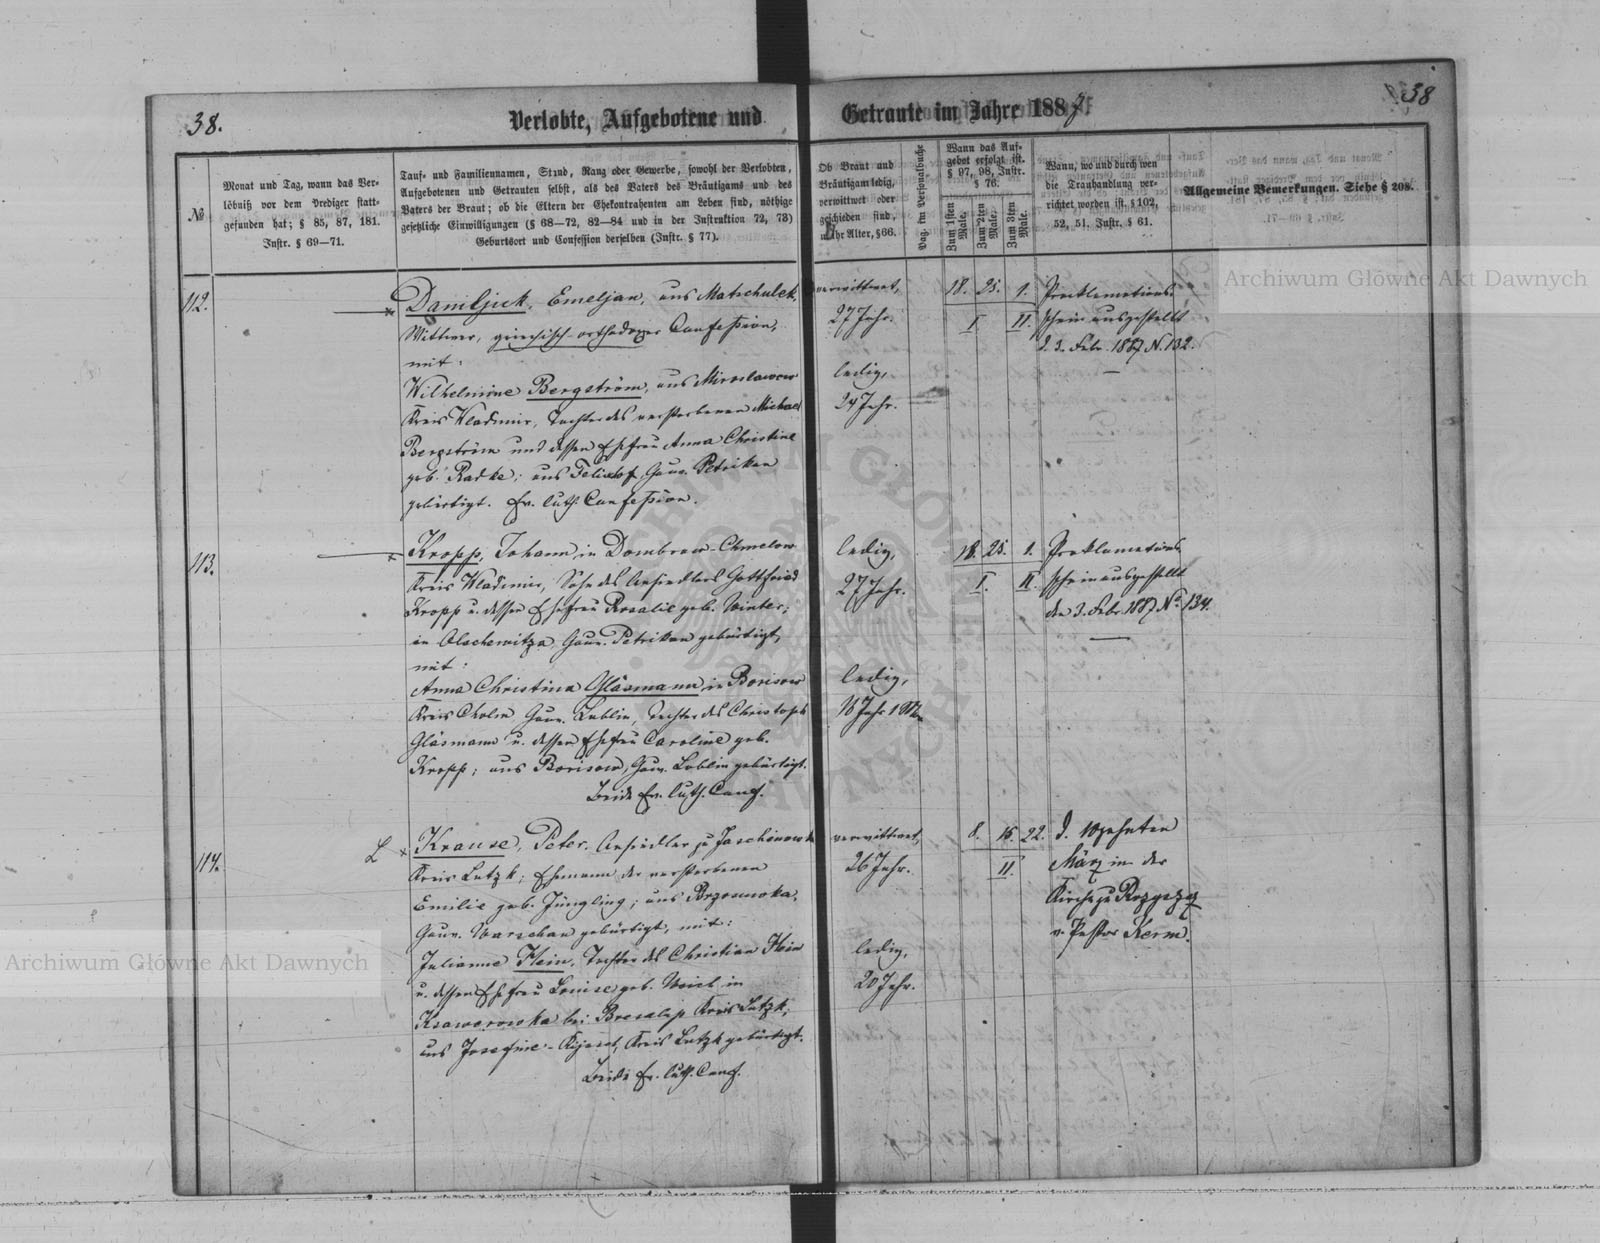 38.
Verlobte, Aufgebotene und
Getraute im Jahre 1887.
38
№
Monat und Tag, wann das Ver-
löbniß vor dem Prediger statt-
gefunden hat; § 85, 87, 181.
Instr. § 69—71.
Tauf- und Familiennamen, Stand, Rang oder Gewerbe, sowohl der Verlobten,
Aufgebotenen und Getrauten selbst, als des Vaters des Bräutigams und des
Vaters der Braut; ob die Eltern der Ehekontrahenten am Leben sind, nöthige
gesetzliche Einwilligungen (§ 68—72, 82—84 und in der Instruktion 72, 73)
Geburtsort und Confession derselben (Instr. § 77).
Ob Braut und
Bräutigam ledig,
verwittwet oder
geschieden sind,
u. ihr Alter, § 66.
Pag. im Personalbuche
Wann das Auf-
gebot erfolgt ist.
§ 97, 98, Instr.
§ 76.
Zum 1sten Male.
Zum 2ten Male.
Zum 3ten Male.
Wann, wo und durch wen
die Trauhandlung ver-
richtet worden ist. § 102,
52, 51. Instr. § 61.
Allgemeine Bemerkungen. Siehe § 208.
112.
Daniljuk, Emeljan, aus Matschulek,
Wittwer, griechisch-orthodoxer Confession,
mit:
Wilhelmine Bergström, aus Miroslawow
Kreis Wladimir, Tochter des verstorbenen Michael
Bergström und dessen Ehefrau Anna Christine
geb. Radke; aus Felixdorf, Gouv. Petrikau
gebürtigt. Ev. luth. Confession.
verwittwet,
27 Jahr.
ledig,
24 Jahr.
18. 25. 1.
I II.
Proklamations-
schein ausgestellt
d. 3. Febr. 1887 N. 132.
113.
Kropp, Johann, in Dombrow-Chmelow
Kreis Wladimir, Sohn des Ansiedlers Gottfried
Kropp u. dessen Ehefrau Rosalie geb. Winter;
in Olschewitza, Gouv. Petrikau gebürtigt,
mit:
Anna Christina Gläsmann in Borisow
Kreis Cholm Gouv. Lublin, Tochter des Christoph
Gläsmann u. dessen Ehefrau Caroline geb.
Kropp; aus Borisow, Gouv. Lublin gebürtigt.
Beide Ev. luth. Conf.
ledig,
27 Jahr.
ledig,
18. 25. 1.
I. II.
Proklamations-
schein ausgestellt
den 3. Febr. 1887 No 134.
114.
Krause, Peter, Ansiedler zu
Kreis Lutzk; Ehemann der verstorbenen
Emilie geb. Jüngling; aus
Gouv. Warschau gebürtigt, mit:
Julianne Hein, Tochter des Christian Hein
u. dessen Ehefrau Louise geb. in
Ksawerowka bei Kreis Lutzk,
aus Josefine- Kreis Lutzk gebürtigt.
Beide Ev. luth. Conf.
verwittwet,
26 Jahr.
ledig,
20 Jahr.
8. 15. 22.
II.
März in der
Kirche zu Rozyszcz
v. Pastor Kerm.
Archiwum Główne Akt Dawnych
Archiwum Główne Akt Dawnych